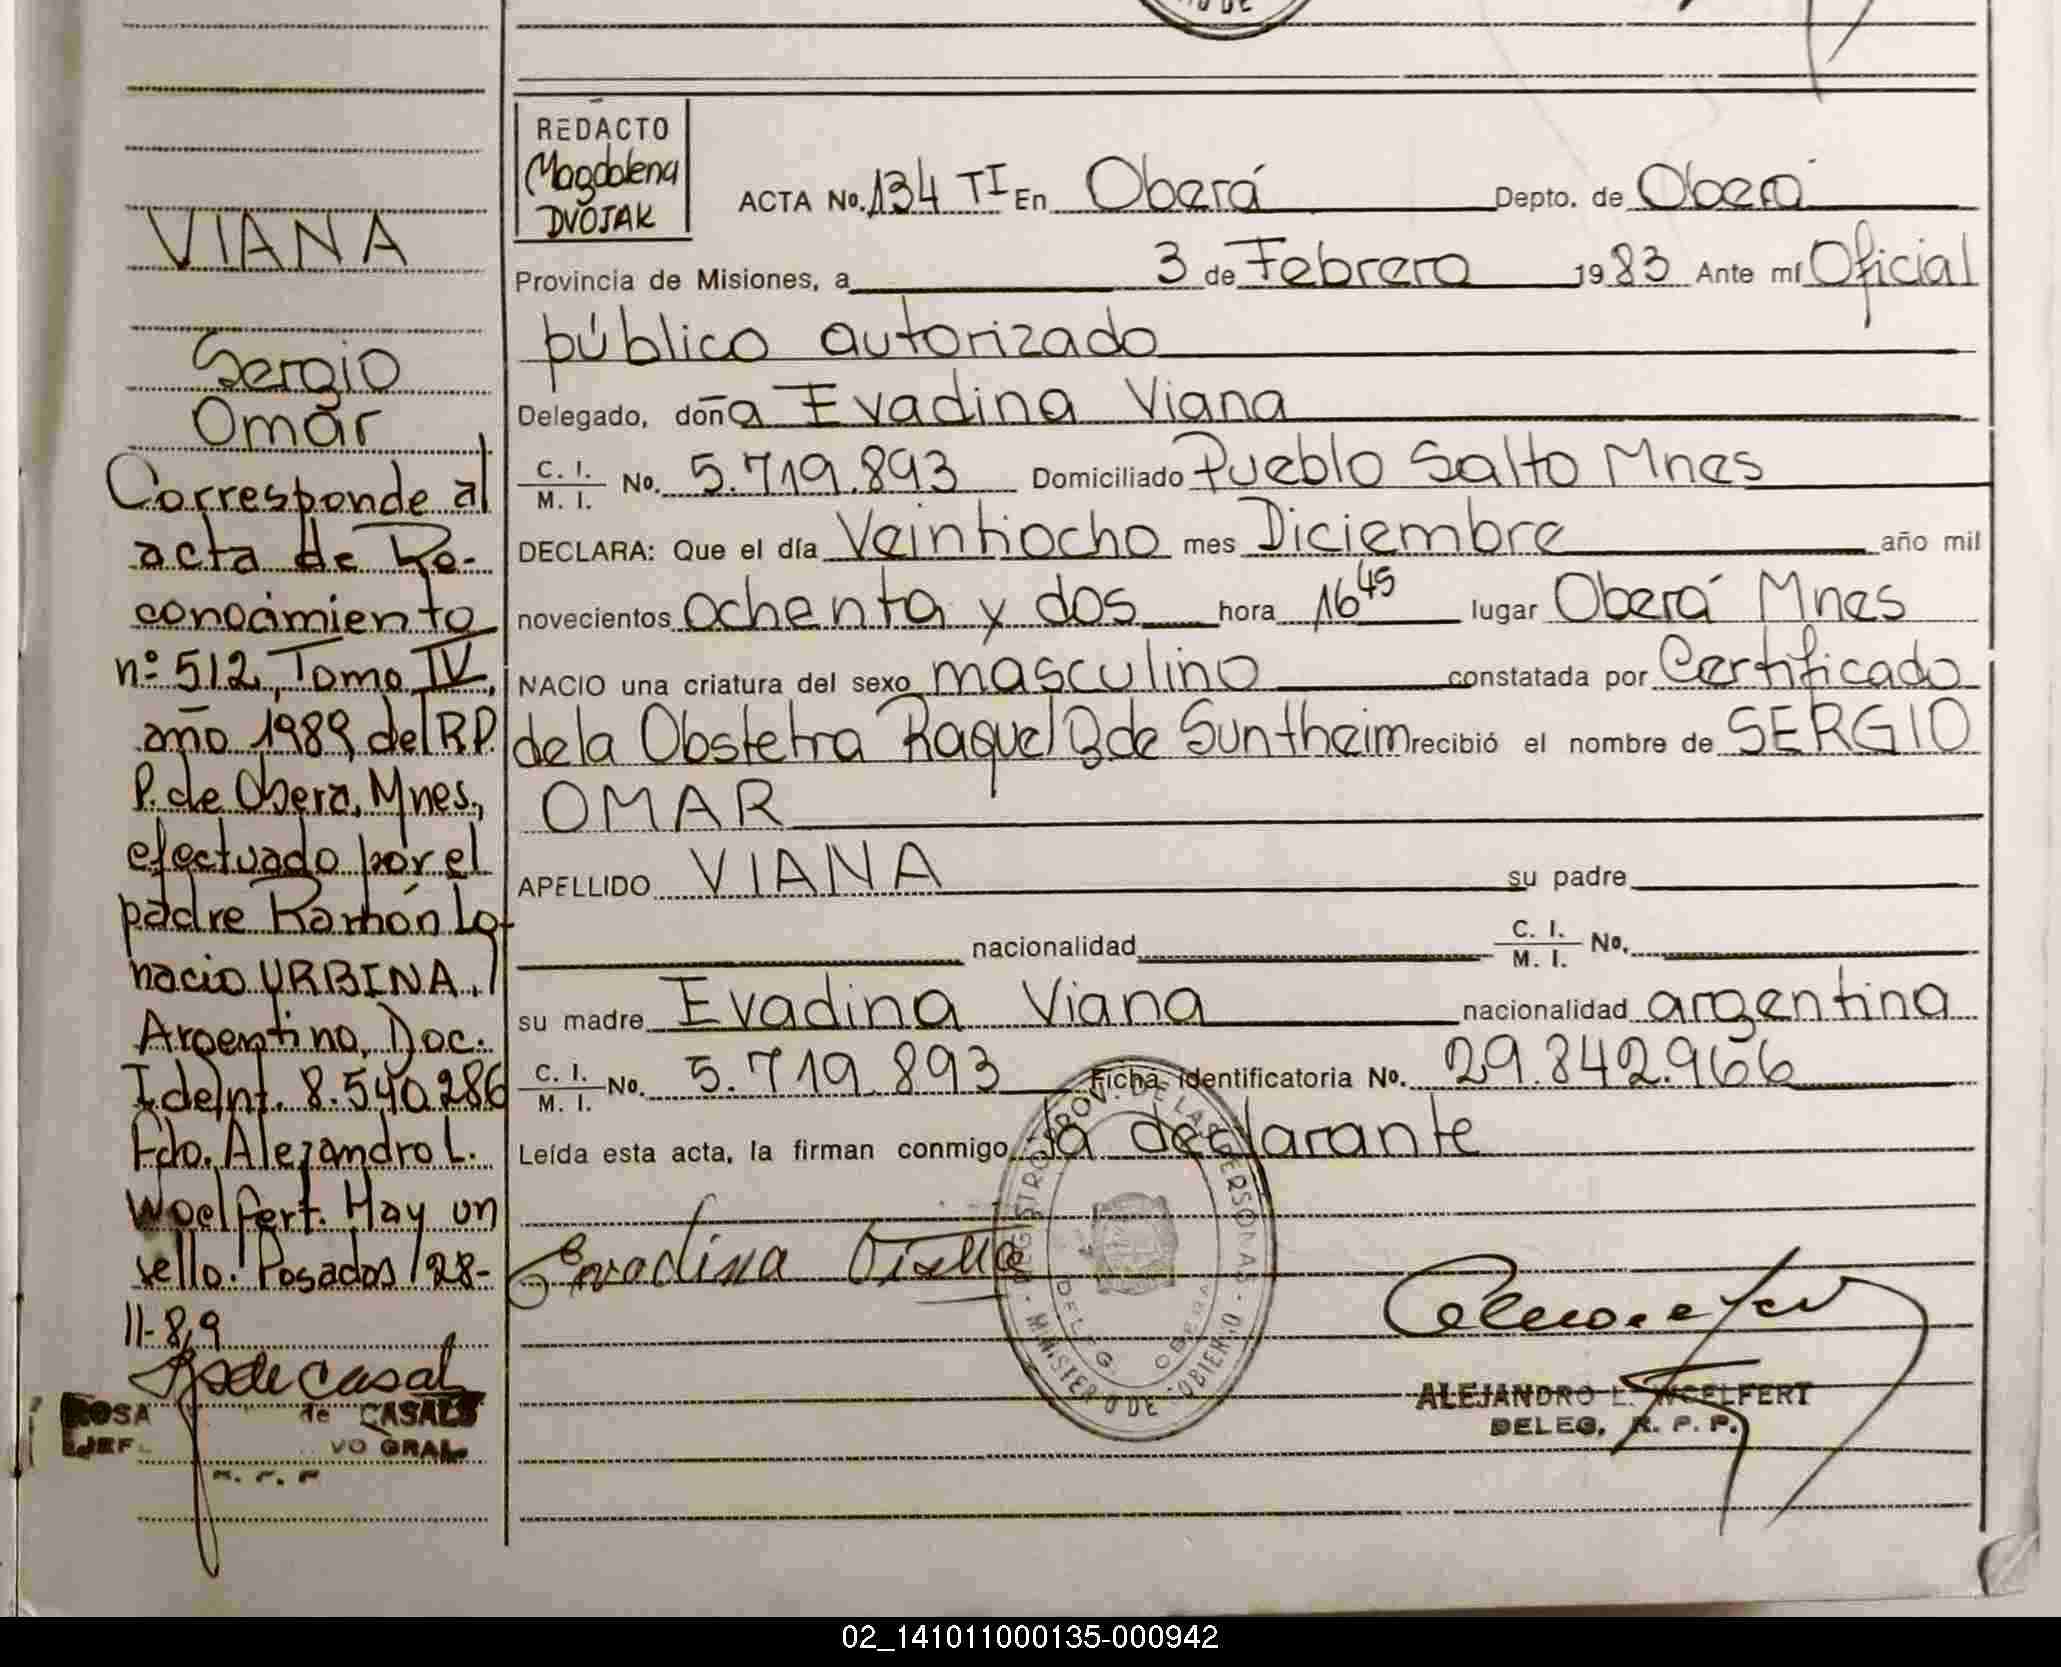 VIANA
Sergio
Omar
Corresponde al
acta de Re-
conocimiento
nº 512, Tomo IV,
año 1989, del R.P.
P. de Oberá, Mnes.,
efectuado por el
padre Ramón Ig-
nacio URBINA,
Argentino, Doc.
Ident. 8.540.286
Fdo. Alejandro L.
Woelfert. Hay un
sello. Posadas, 28-
11-89
ROSA de CASALS
JEF VO GRAL.
REDACTO
Magdalena
DVOJAK
ACTA No. 134 TI En Oberá Depto. de Oberá
Provincia de Misiones, a 3 de Febrero 1983 Ante mí Oficial
público autorizado
Delegado, doña Evadina Viana
C. I. / M. I. No. 5.719.893 Domiciliado Pueblo Salto Mnes
DECLARA: Que el día Veintiocho mes Diciembre año mil
novecientos ochenta y dos hora 16 45 lugar Oberá Mnes
NACIO una criatura del sexo masculino constatada por Certificado
de la Obstetra Raquel de Suntheim recibió el nombre de SERGIO
OMAR
APELLIDO VIANA su padre
nacionalidad C. I. / M. I. No.
su madre Evadina Viana nacionalidad argentina
C. I. / M. I. No. 5.719.893 Ficha identificatoria No. 29.842.966
Leída esta acta, la firman conmigo la declarante
Evadina Viana
REGISTRO PROV. DE LAS PERSONAS
MINISTERIO DE GOBIERNO
DELEG. OBERA
ALEJANDRO L. WOELFERT
DELEG. R. P. P.
02_141011000135-000942